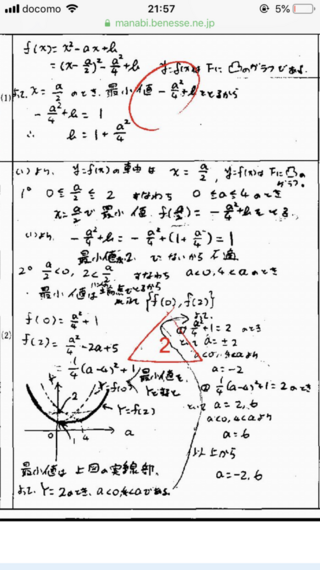 docomo 21:57 5%
manabi.benesse.ne.jp
f(x)=x²-ax+b
=(x-a/2)²-a²/4+b y=f(x)は下に凸のグラフである.
(1) よって x=a/2 のとき, 最小値 -a²/4+b をとるから
-a²/4+b=1
∴ b=1+a²/4
(1)より, y=f(x)の軸は x=a/2, y=f(x)は下に凸のグラフ.
1° 0≦a/2≦2 すなわち 0≦a≦4 のとき
x=a/2で最小値 f(a/2)=-a²/4+bをとる.
(1)より -a²/4+b=-a²/4+(1+a²/4)=1
最小値が2でないから不適.
2° a/2<0, 2<a/2 すなわち a<0, 4<a のとき
最小値は
{f(0), f(2)}
(2)
f(0)=a²/4+1
f(2)=a²/4-2a+5
=1/4(a-4)²+1
2
a²/4+1=2 のとき
a=±2
a<0, 4<aより
a=-2
1/4(a-4)²+1=2 のとき
a=2, 6
a<0, 4<aより
a=6
以上から
a=-2, 6
Y=f(0)
Y=f(2)
最小値を
Y
2
1
0
4
a
最小値は上図の実線部.
よって, Y=2のとき, a<0, 4<aである.